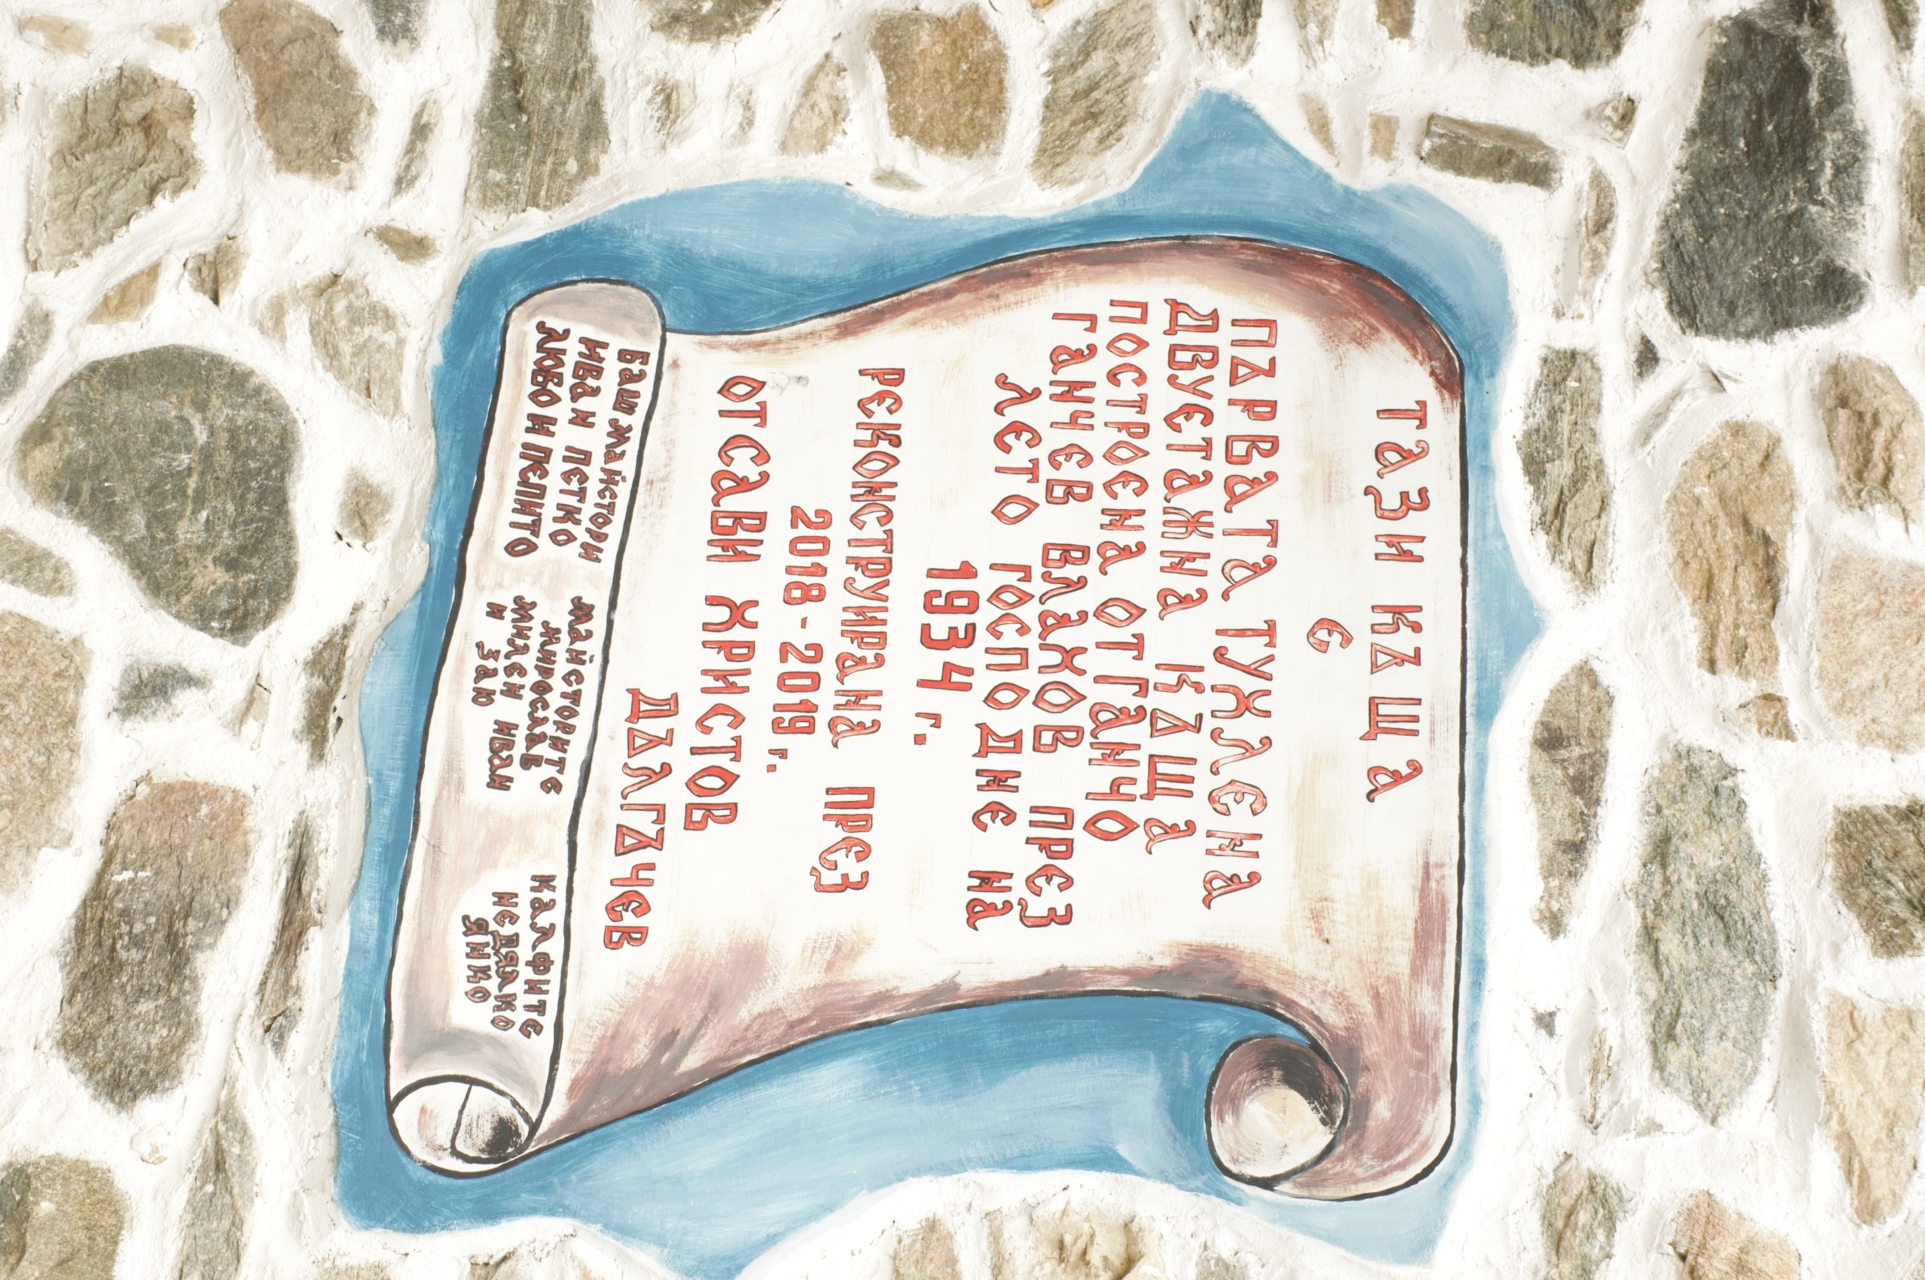 ТАЗИ КЪЩА
Е
ПЪРВАТА ТУХЛЕНА
ДВУЕТАЖНА КЪЩА
ПОСТРОЕНА ОТ ГАНЧО
ГАНЧЕВ ВЛАХОВ ПРЕЗ
ЛЕТО ГОСПОДНЕ НА
1934 г.
РЕКОНСТРУИРАНА ПРЕЗ
2018-2019 г.
ОТ САВИ ХРИСТОВ
ДЪЛГЪЧЕВ
БАШ МАЙСТОРИ
ИВАН ПЕТКО
ЛЮБО И ПЕПИТО
МАЙСТОРИТЕ
МИРОСЛАВ
МИЛЕН ИВАН
И ЗАЮ
КАЛФИТЕ
НЕДЯЛКО
ЯНКО